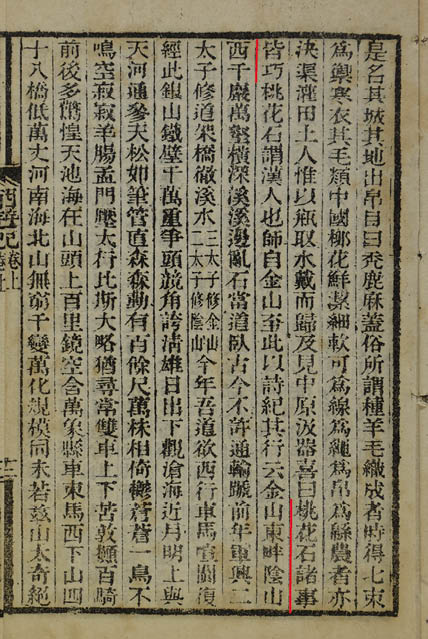 是名其城其地出帛目曰禿鹿麻蓋俗所謂種羊毛織成者時得七束
為禦寒衣其毛類中國柳花鮮潔細軟可為線為繩為帛為綿農者亦
決渠灌田土人惟以瓶取水戴而歸及見中原汲器喜曰桃花石諸事
皆巧桃花石謂漢人也師自金山至此以詩紀其行云金山東畔陰山
西千巖萬壑橫深溪溪邊亂石當道臥古今不許通輪蹄前年軍興二
太子修道架橋徹溪水三太子修金山二太子修陰山今年吾道欲西行車馬喧闐復
經此銀山鐵壁千萬重爭頭競角誇清雄日出下觀滄海近月明上與
天河通參天松如筆管直森森動有百餘尺萬株相倚鬱蒼蒼一鳥不
鳴空寂寂羊腸孟門壓太行比斯大略猶尋常雙車上下苦敦顛百騎
前後多驚惶天池海在山頭上百里鏡空含萬象縣車束馬西下山四
十八橋低萬丈河南海北山無窮千變萬化規模同未若茲山太奇絕
西遊記卷上